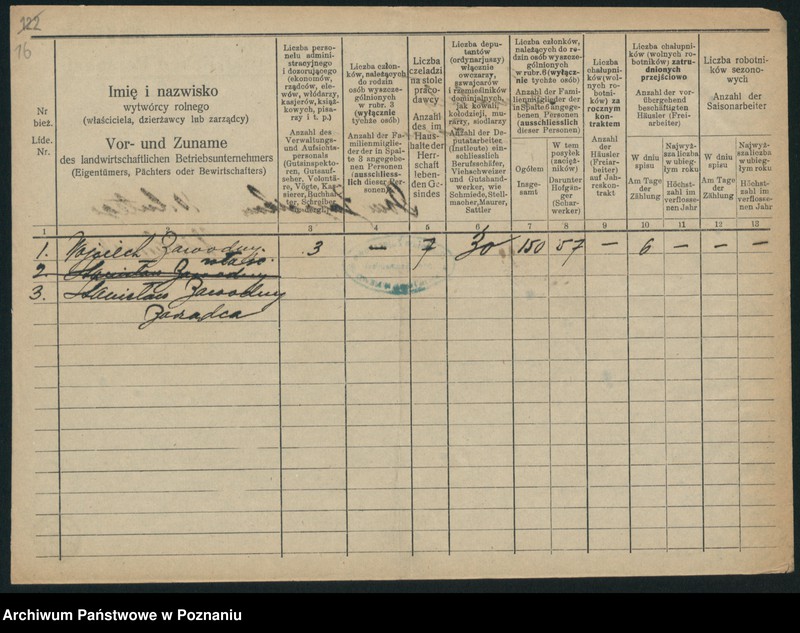 122
16
Nr
bież.
Lfde.
Nr.
Imię i nazwisko
wytwórcy rolnego
(właściciela, dzierżawcy lub zarządcy)
Vor- und Zuname
des landwirtschaftlichen Betriebsunternehmers
(Eigentümers, Pächters oder Bewirtschafters)
Liczba perso-
nelu admini-
stracyjnego
i dozorującego
(ekonomów,
rządców, ele-
wów, włódarzy,
kasjerów, książ-
kowych, pisa-
rzy i t. p.)
Anzahl des
Verwaltungs-
und Aufsichts-
personals
(Gutsinspekto-
ren, Gutsauf-
seher, Volontä-
re, Vögte, Kas-
sierer, Buchhal-
ter, Schreiber
Liczba człon-
ków, należących
do rodzin
osób wyszcze-
gólnionych
w rubr. 3
(wyłącznie
tychże osób)
Anzahl der Fa-
milienmitglie-
der der in Spal-
te 3 angegebe-
nen Personen
(ausschliess-
lich dieser Per-
sonen)
Liczba
czeladzi
na stole
praco-
dawcy
Anzahl
des im
Haus-
halte der
Herr-
schaft
leben-
den Ge-
sindes
Liczba depu-
tantów
(ordynarjuszy)
włącznie
owczarzy,
szwajcarów
i rzemieślników
dominjalnych,
jak kowali,
kołodzieji, mu-
rarzy, siodlarzy
Anzahl der De-
putatarbeiter
(Instleute) ein-
schliesslich
Berufsschäfer,
Viehschweizer
und Gutshand-
werker, wie
Schmiede, Stell-
macher, Maurer,
Sattler
Liczba członków,
należących do ro-
dzin osób wyszcze-
gólnionych
w rubr. 6 (wyłącz-
nie tychże osób)
Anzahl der Fami-
lienmitglieder der
in Spalte 6 angege-
benen Personen
(ausschliesslich
dieser Personen)
Ogółem
Insge-
samt
W tem
posyłek
(zacięż-
ników)
Darunter
Hofgän-
ger
(Schar-
werker)
Liczba
chałupni-
ków(wol-
nych ro-
botni-
ków) za
rocznym
kon-
traktem
Anzahl
der
Häusler
(Freiar-
beiter)
auf Jah-
reskon-
trakt
Liczba chałupni-
ków (wolnych ro-
botników) zatru-
dnionych
przejściowo
Anzahl der vor-
übergehend
beschäftigten
Häusler (Frei-
arbeiter)
W dniu
spisu
Am Tage
der
Zählung
Najwyż-
sza liczba
w ubieg-
łym roku
Höchst-
zahl im
verflosse-
nen Jahr
Liczba robotni-
ków sezono-
wych
Anzahl der
Saisonarbeiter
W dniu
spisu
Am Tage
der
Zählung
Najwyż-
sza liczba
w ubieg-
łym roku
Höchst-
zahl im
verflosse-
nen Jahr
1 3 4 5 6 7 8 9 10 11 12 13
1. Wojciech Zawodny. 3 — 7 30 150 57 — 6 — — —
właśc.
2. Stanisław Zawodny
3. Stanisław Zawodny
Zarządca
Archiwum Państwowe w Poznaniu